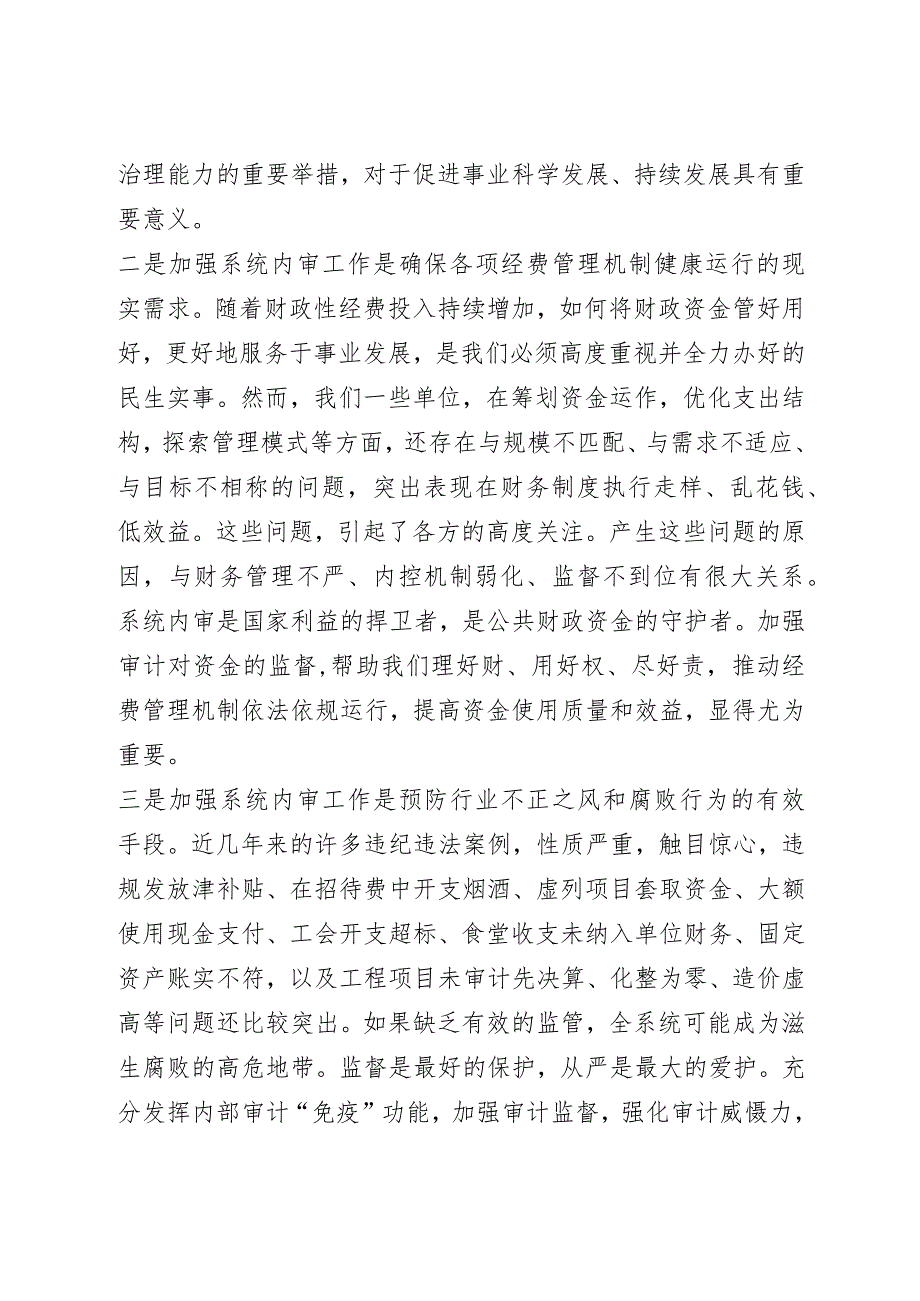 治理能力的重要举措，对于促进事业科学发展、持续发展具有重
要意义。
二是加强系统内审工作是确保各项经费管理机制健康运行的现
实需求。随着财政性经费投入持续增加，如何将财政资金管好用
好，更好地服务于事业发展，是我们必须高度重视并全力办好的
民生实事。然而，我们一些单位，在筹划资金运作，优化支出结
构，探索管理模式等方面，还存在与规模不匹配、与需求不适应、
与目标不相称的问题，突出表现在财务制度执行走样、乱花钱、
低效益。这些问题，引起了各方的高度关注。产生这些问题的原
因，与财务管理不严、内控机制弱化、监督不到位有很大关系。
系统内审是国家利益的捍卫者，是公共财政资金的守护者。加强
审计对资金的监督,帮助我们理好财、用好权、尽好责，推动经
费管理机制依法依规运行，提高资金使用质量和效益，显得尤为
重要。
三是加强系统内审工作是预防行业不正之风和腐败行为的有效
手段。近几年来的许多违纪违法案例，性质严重，触目惊心，违
规发放津补贴、在招待费中开支烟酒、虚列项目套取资金、大额
使用现金支付、工会开支超标、食堂收支未纳入单位财务、固定
资产账实不符，以及工程项目未审计先决算、化整为零、造价虚
高等问题还比较突出。如果缺乏有效的监管，全系统可能成为滋
生腐败的高危地带。监督是最好的保护，从严是最大的爱护。充
分发挥内部审计“免疫”功能，加强审计监督，强化审计威慑力，